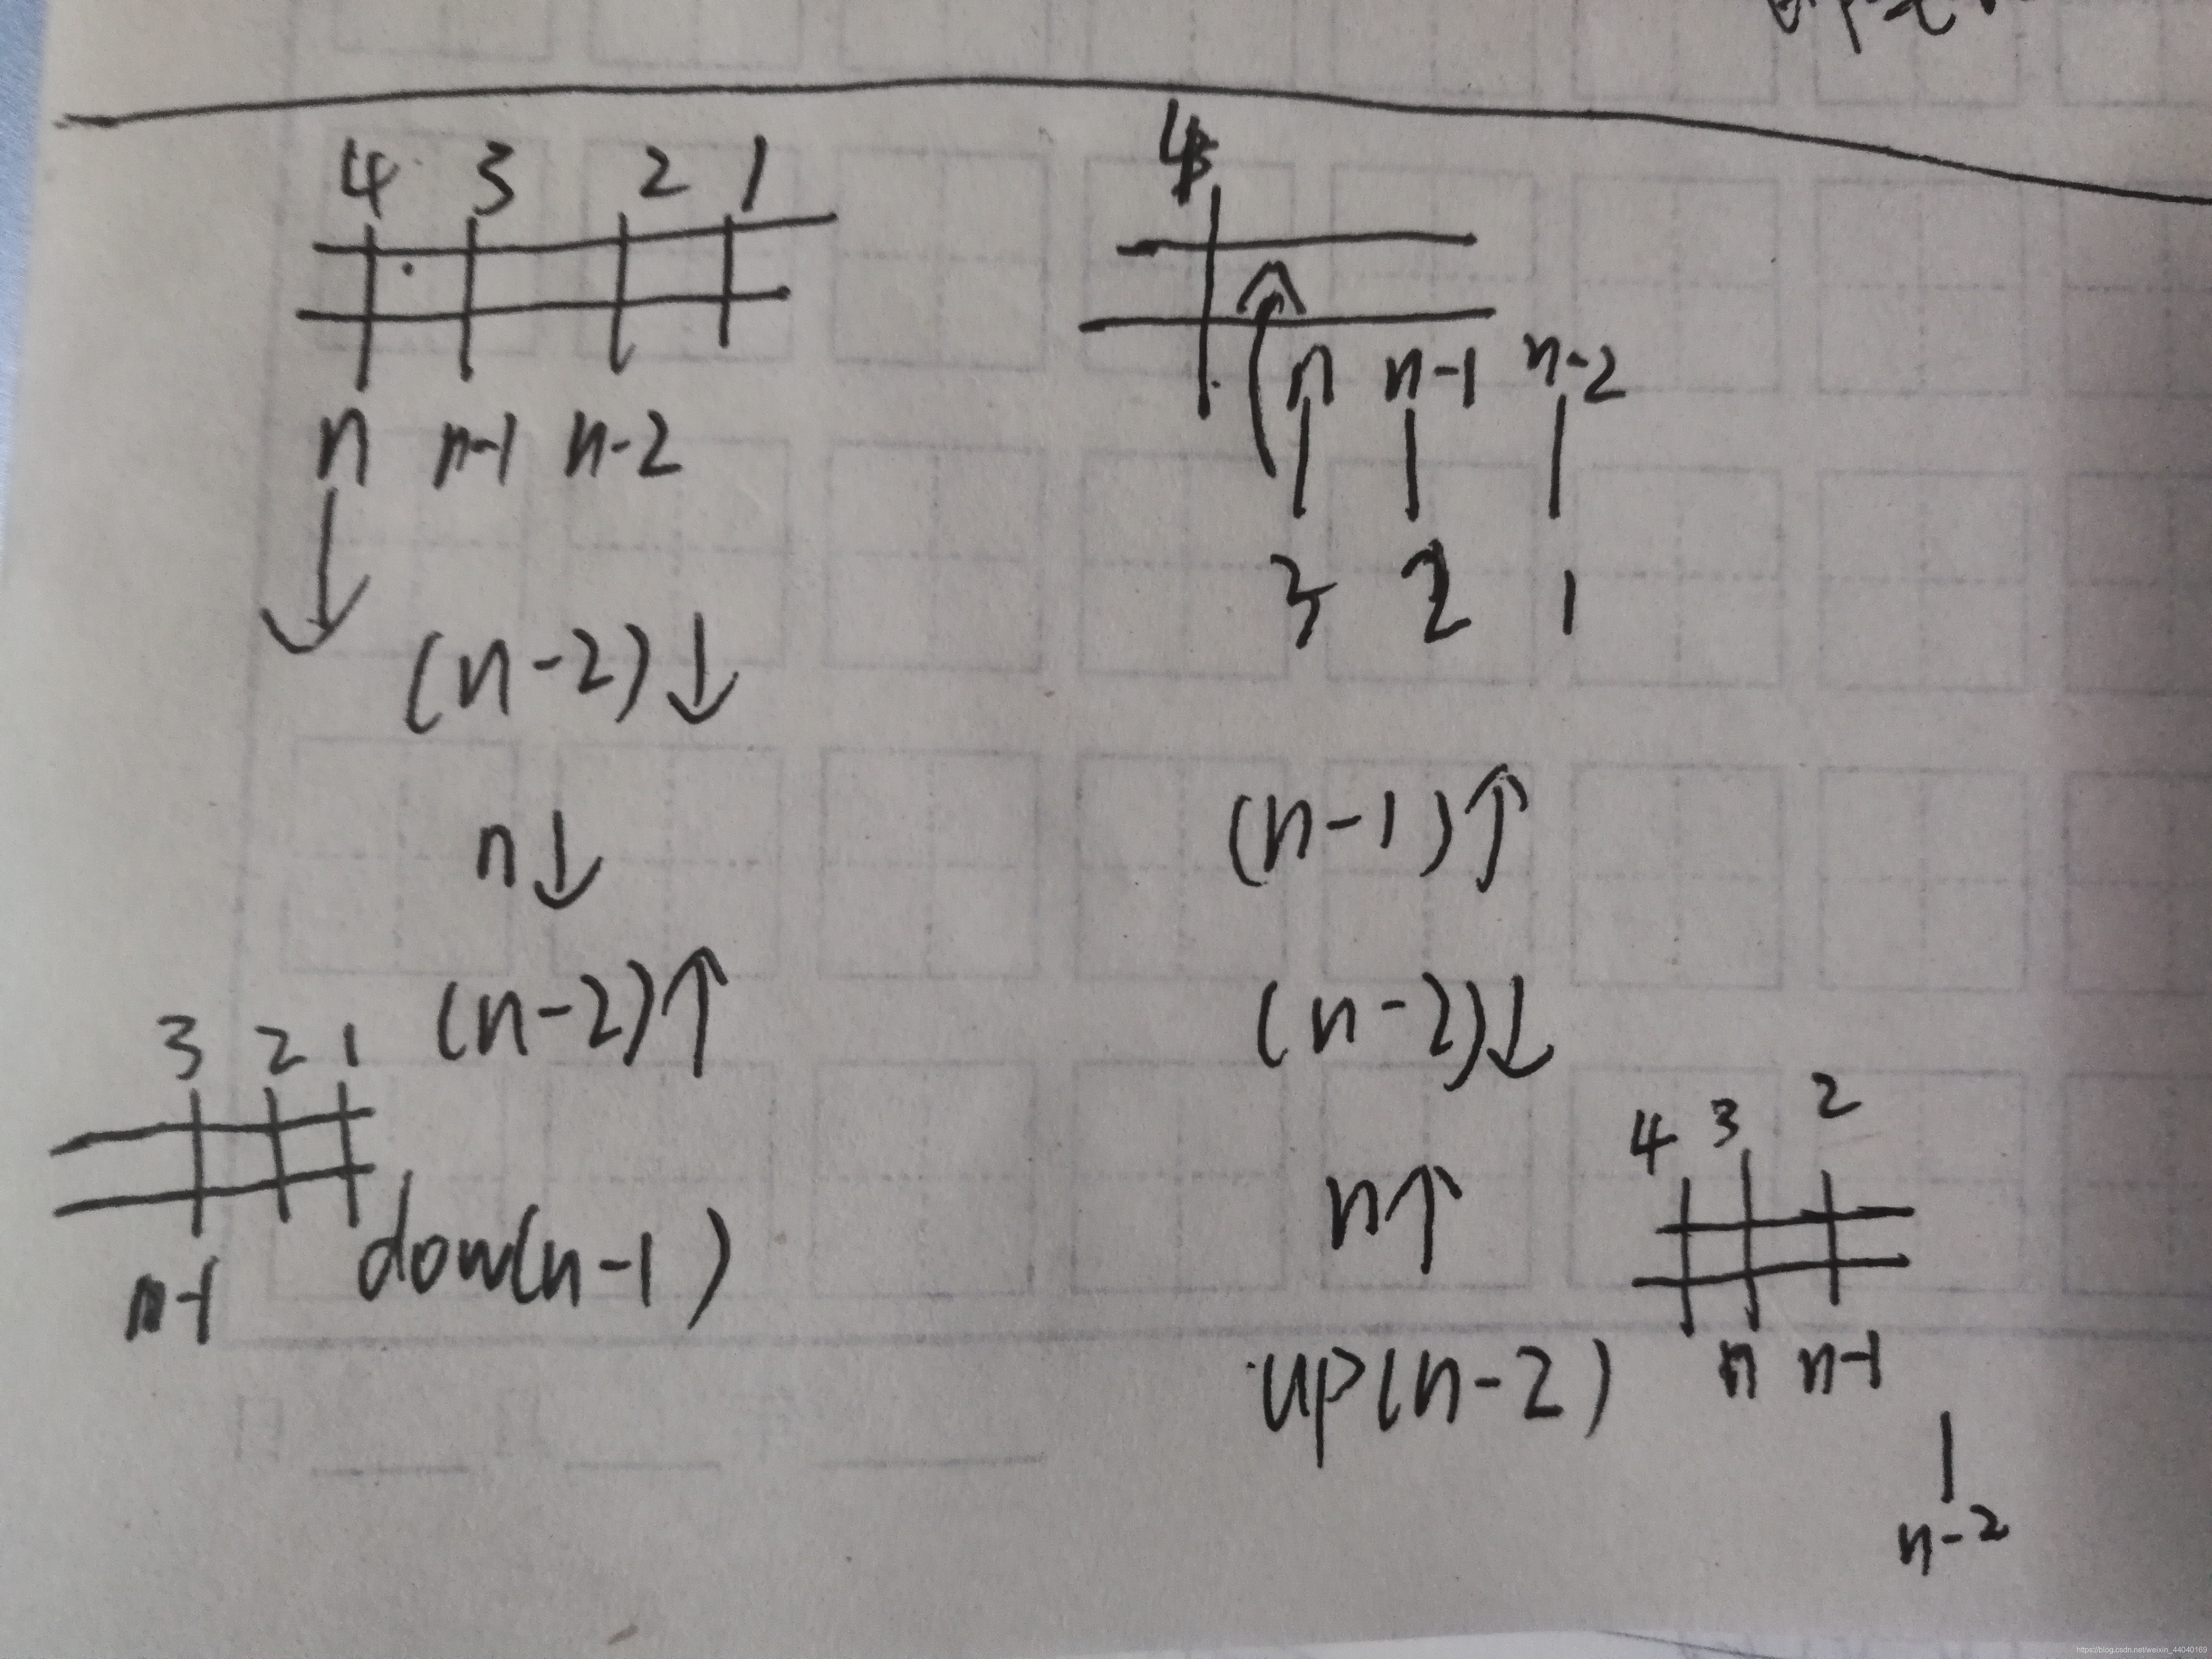 4 3 2 1
n n-1 n-2
(n-2)↓
n↓
(n-2)↑
3 2 1
n-1
dow(n-1)
4
n n-1 n-2
3 2 1
(n-1)↑
(n-2)↓
n↑
up(n-2)
4 3 2
n n-1
n-2
https://blog.csdn.net/weixin_44040169